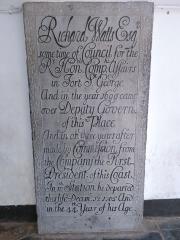 Richard Watts Esq.
some time of Council for the
Rt. Hon. Comp. Affairs
in Fort St. George
And in the year 1699 came
over Deputy Govern
of this Place
And in or were year after
made by Commission from
the Company the First
President of this Coast
In Station he departed
this life Decem. 22. 1705 And
in the 44 Year of his Age